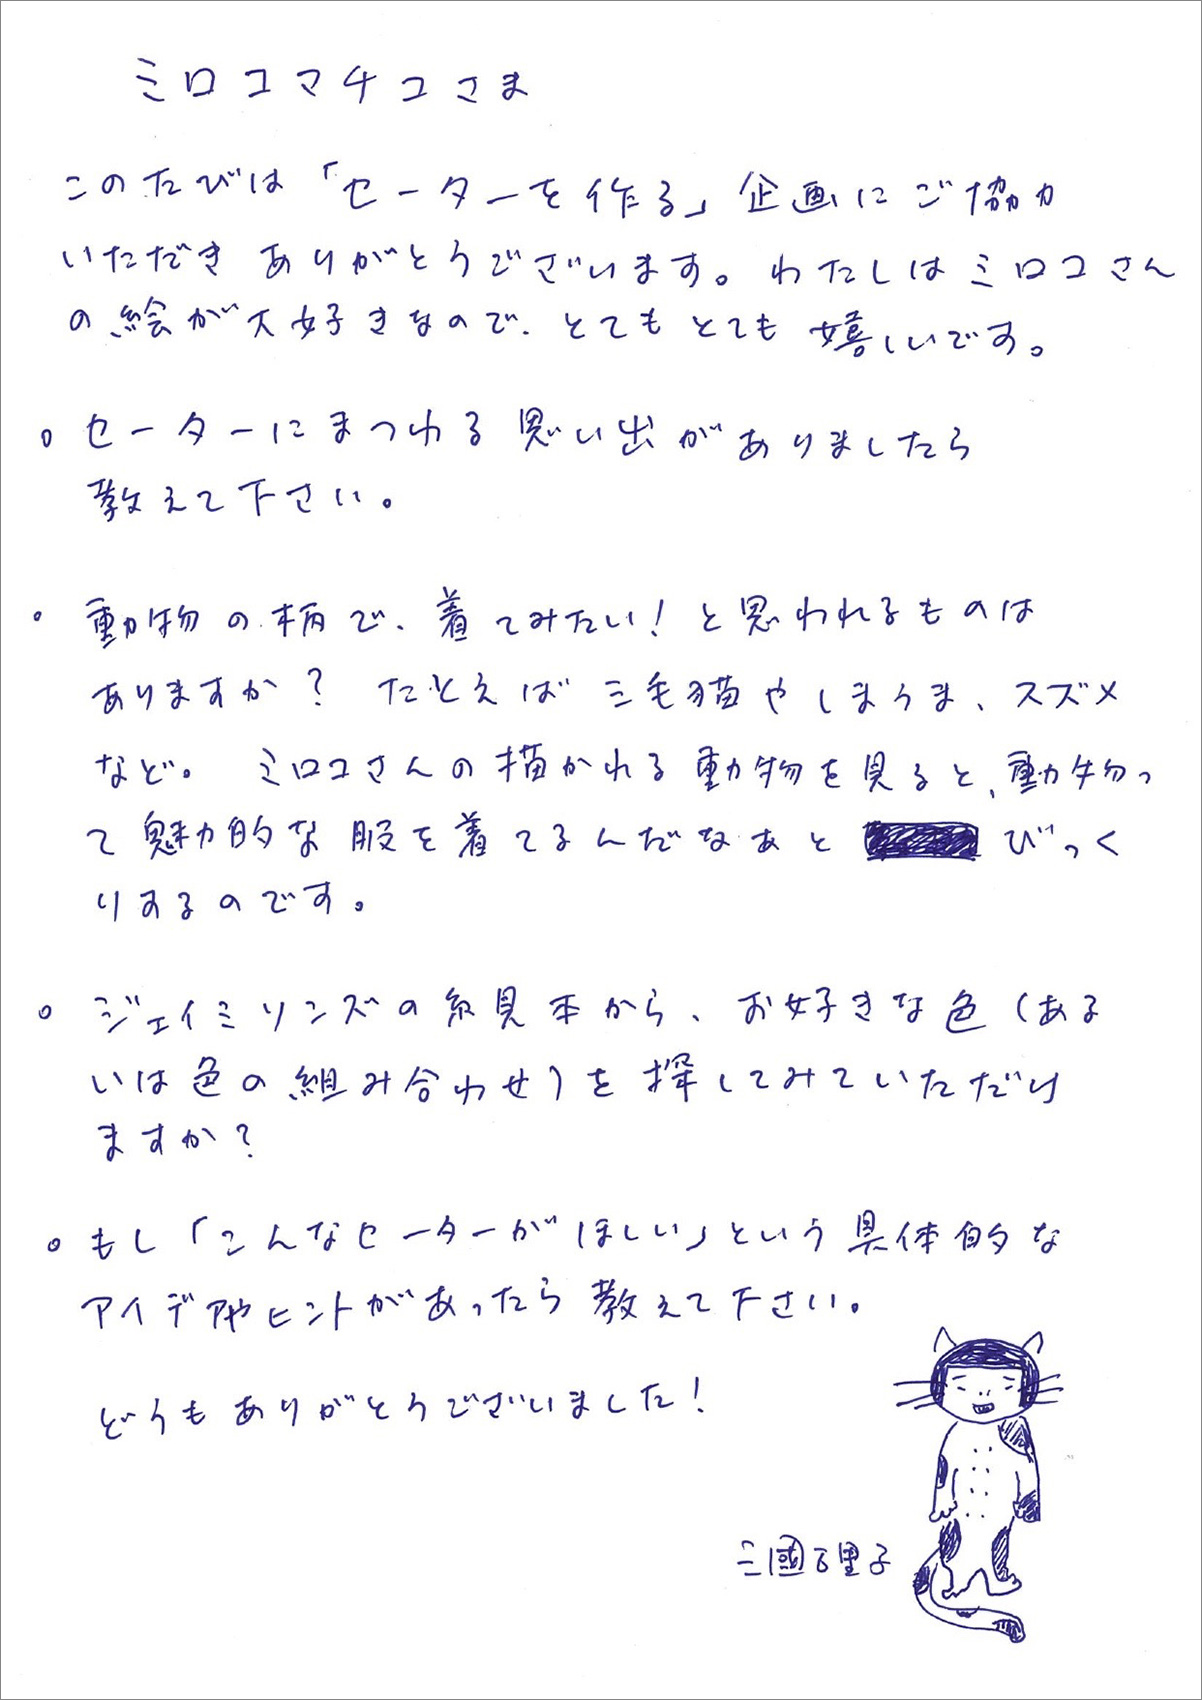 ミロコマチコさま
このたびは「セーターを作る」企画にご協力
いただき ありがとうございます。わたしはミロコさん
の絵が大好きなので、とてもとても嬉しいです。
○ セーターにまつわる思い出がありましたら
教えて下さい。
○ 動物の柄で、着てみたい!と思われるものは
ありますか? たとえば三毛猫やしまうま、スズメ
など。 ミロコさんの描かれる動物を見ると、動物っ
て魅力的な服を着てるんだなぁと びっく
りするのです。
○ ジェイミソンズの糸見本から、お好きな色(ある
いは色の組み合わせ)を探してみていただけ
ますか?
○ もし「こんなセーターがほしい」という具体的な
アイデアやヒントがあったら教えて下さい。
どうもありがとうございました!
三國万里子